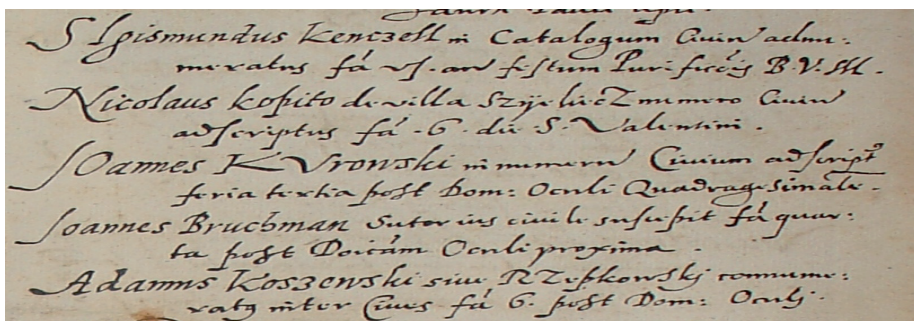 SIgismundus Kenczell in Catalogum Civiū adnu:
meratus fá vj. an̄ festum Purificōis B. V. M.
Nicolaus Kopito de villa Szyelięcz numero Civiū
adscriptus fá . 6 . die S. Valentini .
IOannes KVrowski in numerū Civium adscript9
feria tertia post Dom: Oculi Quadragesimalē.
Joannes Bruchman Sutor ius civile suscepit fá quar:
ta post Doicám Oculi proxima .
Adamus Koszewski siue RZepkowskj connume:
rat9 inter Cives fá 6. post Dom: Oculj.